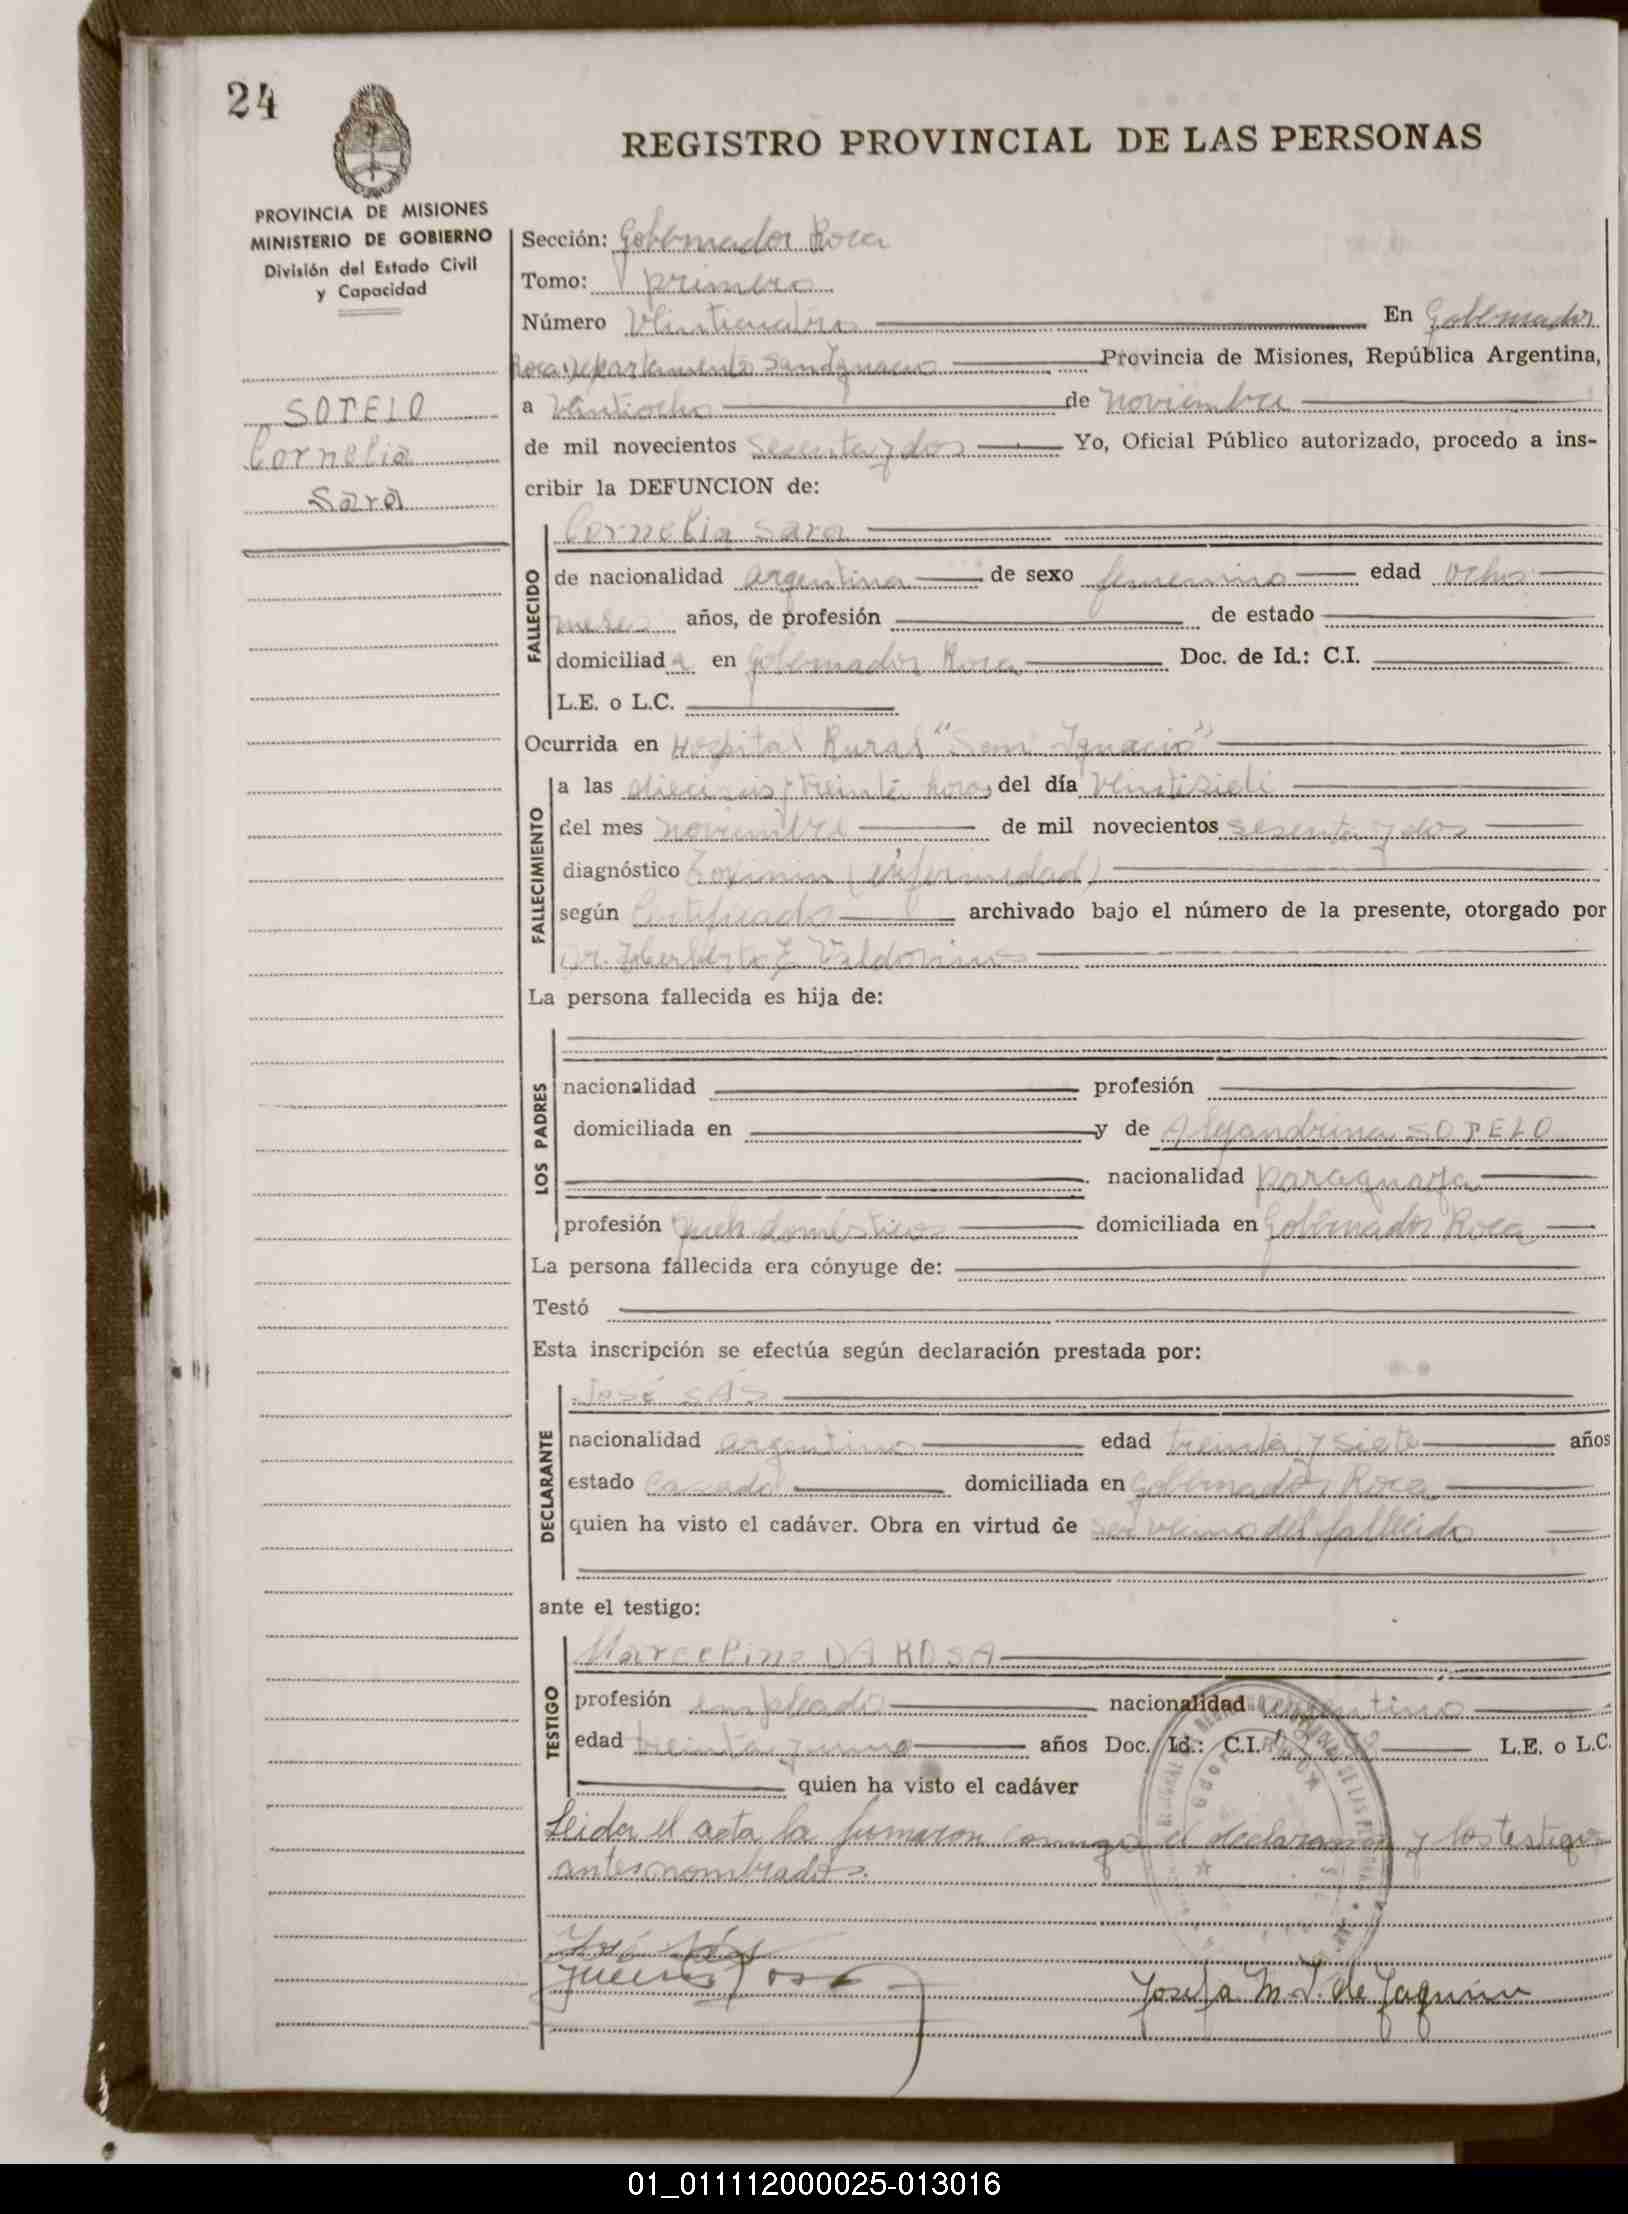 24
REGISTRO PROVINCIAL DE LAS PERSONAS
PROVINCIA DE MISIONES
MINISTERIO DE GOBIERNO
División del Estado Civil
y Capacidad
SOTELO
Cornelia
Sara
Sección: Gobernador Roca
Tomo: primero
Número Veinticuatro En Gobernador
Roca Departamento San Ignacio Provincia de Misiones, República Argentina,
a Veintiocho de noviembre
de mil novecientos sesenta y dos Yo, Oficial Público autorizado, procedo a ins-
cribir la DEFUNCION de:
Cornelia Sara
FALLECIDO
de nacionalidad argentina de sexo femenino edad ocho
meses años, de profesión de estado
domiciliada en Gobernador Roca Doc. de Id.: C.I.
L.E. o L.C.
Ocurrida en Hospital Rural "San Ignacio"
FALLECIMIENTO
a las dieciseis y treinta horas del día Veintisiete
del mes noviembre de mil novecientos sesenta y dos
diagnóstico (enfermedad)
según Certificado archivado bajo el número de la presente, otorgado por
Dr.
La persona fallecida es hija de:
LOS PADRES
nacionalidad profesión
domiciliada en y de Alejandrina SOTELO
nacionalidad paraguaya
profesión domésticos domiciliada en Gobernador Roca
La persona fallecida era cónyuge de:
Testó
Esta inscripción se efectúa según declaración prestada por:
DECLARANTE
José SÁS
nacionalidad argentino edad treinta y siete años
estado casado domiciliada en Gobernador Roca
quien ha visto el cadáver. Obra en virtud de ser vecino del fallecido
ante el testigo:
TESTIGO
Marcelino DA ROSA
profesión empleado nacionalidad argentino
edad treinta y uno años Doc. Id.: C.I. L.E. o L.C.
quien ha visto el cadáver
Leida el acta la firmaron conmigo el declarante y los testigos
antes nombrados.
José Sás
Josefa M. de Jaquin
01_011112000025-013016